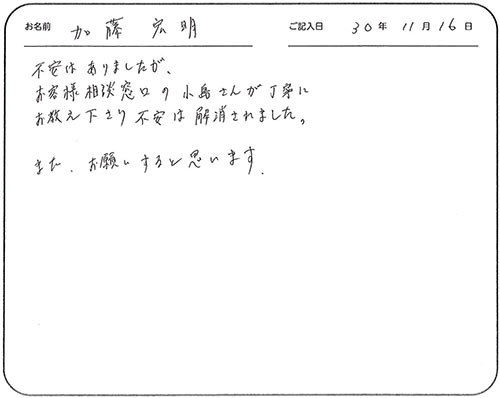 お名前 加藤 宏明 ご記入日 30年 11月 16日
不安はありましたが、
お客様相談窓口の小島さんが丁寧に
お教え下さり不安は解消されました。
また、お願いすると思います.